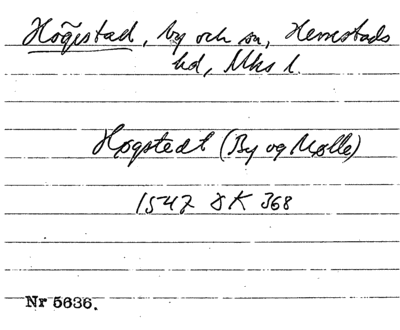 Högestad, by och sn, Herrestads
hd, Mhs l.
Høgstedt (By og Mølle)
1547 DK 368
Nr 5636.